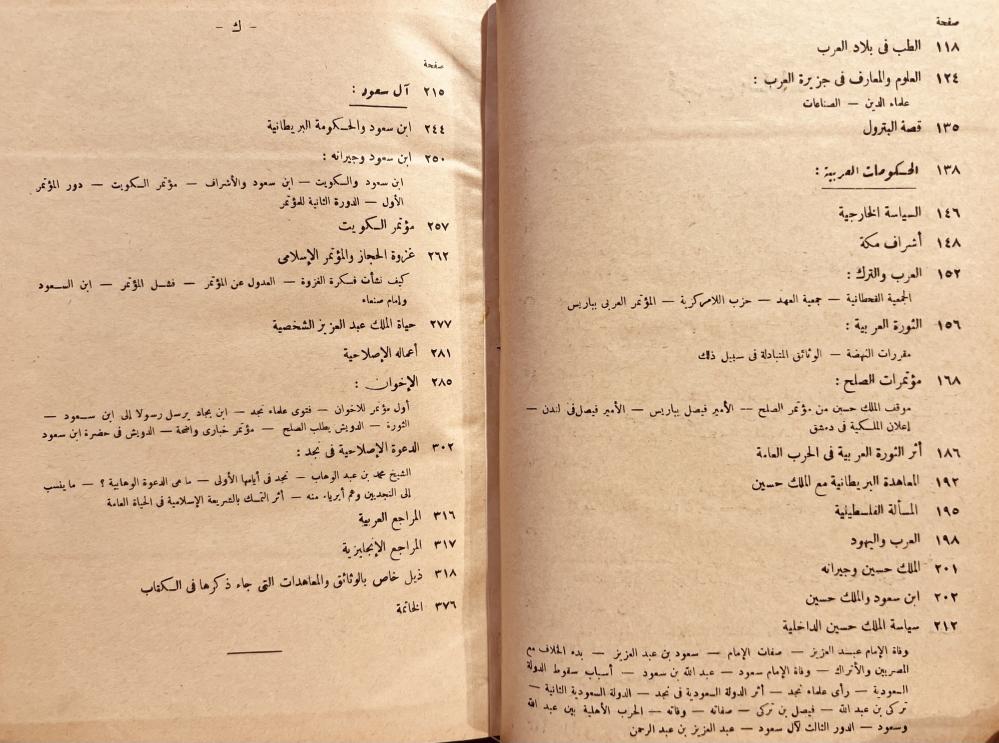 صفحة
١١٨ الطب فى بلاد العرب
١٢٤ العلوم والمعارف فى جزيرة العرب :
علماء الدين — الصناعات
١٣٥ قصة البترول
١٣٨ الحكومات العربية :
١٤٦ السياسة الخارجية
١٤٨ أشراف مكة
١٥٢ العرب والترك :
الجمعية القحطانية — جمعية العهد — حزب اللامركزية — المؤتمر العربى بباريس
١٥٦ الثورة العربية :
مقررات النهضة — الوثائق المتبادلة فى سبيل ذلك
١٦٨ مؤتمرات الصلح :
موقف الملك حسين من مؤتمر الصلح — الأمير فيصل بباريس — الأمير فيصل فى لندن —
إعلان الملكية فى دمشق
١٨٦ أثر الثورة العربية فى الحرب العامة
١٩٢ المعاهدة البريطانية مع الملك حسين
١٩٥ المسألة الفلسطينية
١٩٨ العرب واليهود
٢٠١ الملك حسين وجيرانه
٢٠٢ ابن سعود والملك حسين
٢١٢ سياسة الملك حسين الداخلية
وفاة الإمام عبد العزيز — صفات الإمام — سعود بن عبد العزيز — بدء الخلاف مع
المصريين والأتراك — وفاة الإمام سعود — عبد الله بن سعود — أسباب سقوط الدولة
السعودية — رأى علماء نجد — أثر الدولة السعودية فى نجد — الدولة السعودية الثانية —
تركى بن عبد الله — فيصل بن تركى — صفاته — وفاته — الحرب الأهلية بين عبد الله
وسعود — الدور الثالث لآل سعود — عبد العزيز بن عبد الرحمن
— ك —
صفحة
٢١٥ آل سعود :
٢٤٤ ابن سعود والحكومة البريطانية
٢٥٠ ابن سعود وجيرانه :
ابن سعود والكويت — ابن سعود والأشراف — مؤتمر الكويت — دور المؤتمر
الأول — الدورة الثانية للمؤتمر
٢٥٧ مؤتمر الكويت
٢٦٢ غزوة الحجاز والمؤتمر الإسلامى
كيف نشأت فكرة الغزوة — العدول عن المؤتمر — فشل المؤتمر — ابن السعود
وإمام صنعاء
٢٧٧ حياة الملك عبد العزيز الشخصية
٢٨١ أعماله الإصلاحية
٢٨٥ الإخوان :
أول مؤتمر للاخوان — فتوى علماء نجد — ابن بجاد يرسل رسولا إلى ابن سعود —
الثورة — الدويش يطلب الصلح — مؤتمر خبارى واضحة — الدويش فى حضرة ابن سعود
٣٠٢ الدعوة الإصلاحية فى نجد :
الشيخ محمد بن عبد الوهاب — نجد فى أيامها الأولى — ما هى الدعوة الوهابية ؟ — ما ينسب
إلى النجديين وهم أبرياء منه — أثر التمسك بالشريعة الإسلامية فى الحياة العامة
٣١٦ المراجع العربية
٣١٧ المراجع الإنجليزية
٣١٨ ذيل خاص بالوثائق والمعاهدات التى جاء ذكرها فى الكتاب
٣٧٦ الخاتمة